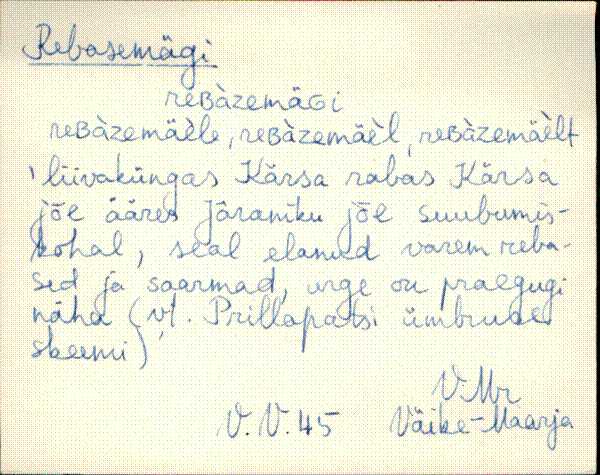 Rebasemägi
reʙàzemäɢi
reʙàzemäèle, reʙàzemäèl, reʙàzemäèlt
'liivaküngas Kärsa rabas Kärsa
jõe ääres Järaniku jõe suubumis-
kohal, seal elanud varem reba-
sed ja saarmad, urge on praegugi
näha (vt. Prillapatsi ümbruse
skeemi)'
V. Mr
V. V. 45 Väike-Maarja